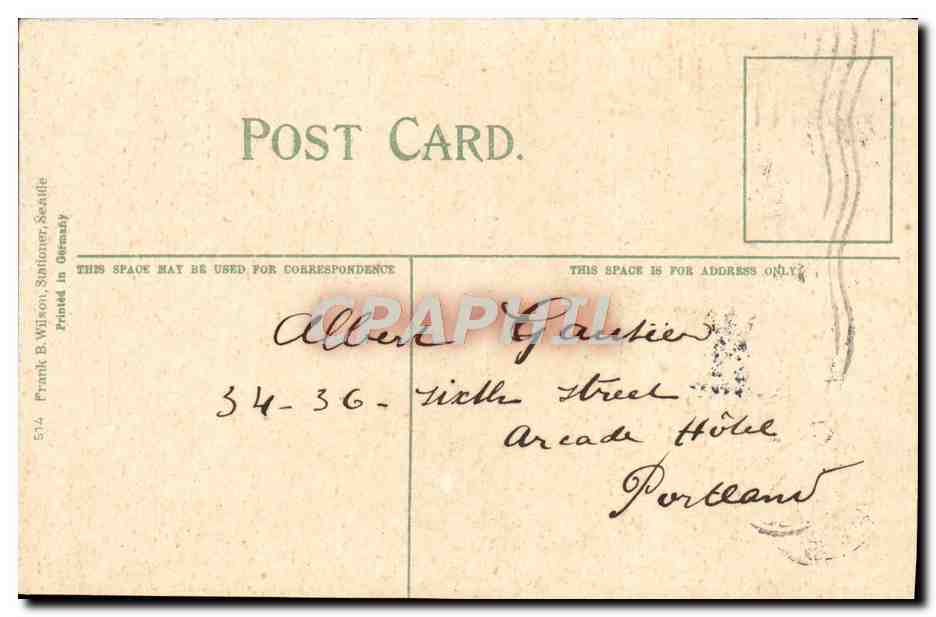 POST CARD.
THIS SPACE MAY BE USED FOR CORRESPONDENCE
THIS SPACE IS FOR ADDRESS ONLY
514 Frank B. Wilson, Stationer, Seattle
Printed in Germany
CPAPHIL
Albert Gautier
34-36 - sixth street
Arcade Hôtel
Portland